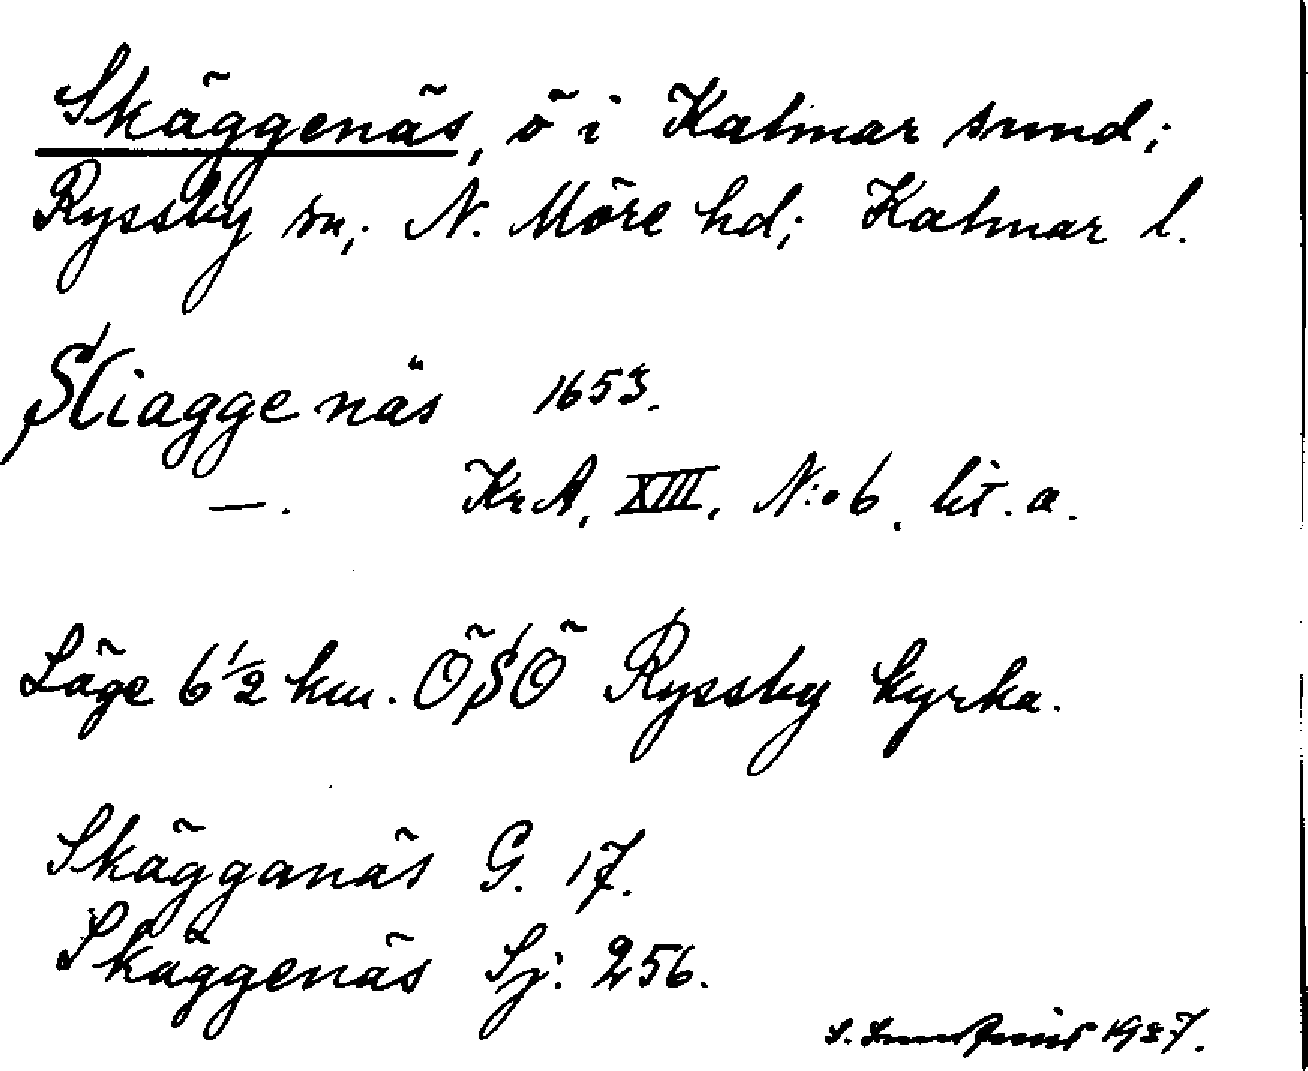 Skäggenäs, ö i Kalmar sund;
Ryssby sn; N. Möre hd; Kalmar l.
Skiaggenäs 1653.
—. KrA, XIII, N:o 6, lit. a.
Läge 6 1/2 km. ÖSÖ Ryssby kyrka.
Skägganäs G. 17.
Skäggenäs Sj: 256.
S. 1937.